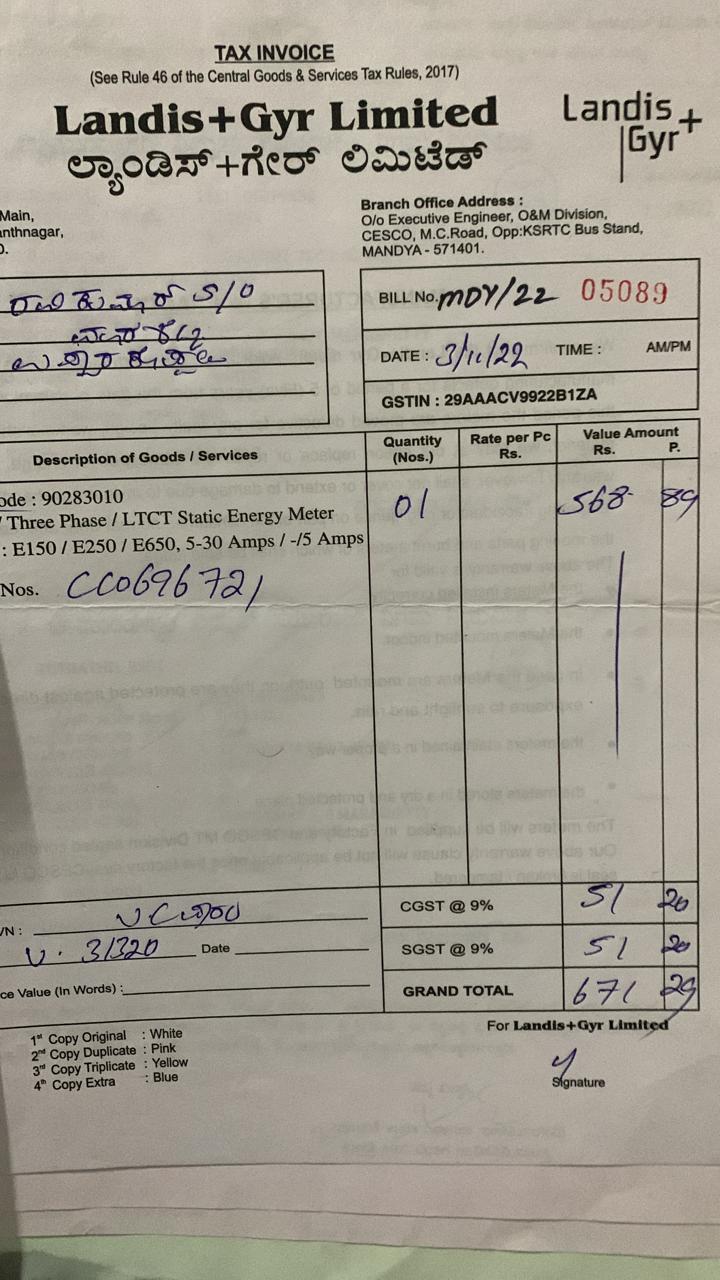 TAX INVOICE
(See Rule 46 of the Central Goods & Services Tax Rules, 2017)
Landis+Gyr Limited
Landis+
Gyr
ಲ್ಯಾಂಡಿಸ್+ಗೇರ್ ಲಿಮಿಟೆಡ್
Main,
anthnagar,
Branch Office Address :
O/o Executive Engineer, O&M Division,
CESCO, M.C.Road, Opp:KSRTC Bus Stand,
MANDYA - 571401.
ರವಿ ಕುಮಾರ್ S/O
BILL No. MDY/22 05089
DATE : 3/11/22 TIME : AM/PM
GSTIN : 29AAACV9922B1ZA
Description of Goods / Services Quantity (Nos.) Rate per Pc Rs. Value Amount Rs. P.
ode : 90283010 01 568 89
/ Three Phase / LTCT Static Energy Meter
: E150 / E250 / E650, 5-30 Amps / -/5 Amps
Nos. CC0696721
CGST @ 9% 51 20
/N :
31320 Date SGST @ 9% 51 20
ce Value (In Words) : GRAND TOTAL 671 29
For Landis+Gyr Limited
1st Copy Original : White
2nd Copy Duplicate : Pink
3rd Copy Triplicate : Yellow
4th Copy Extra : Blue
Signature